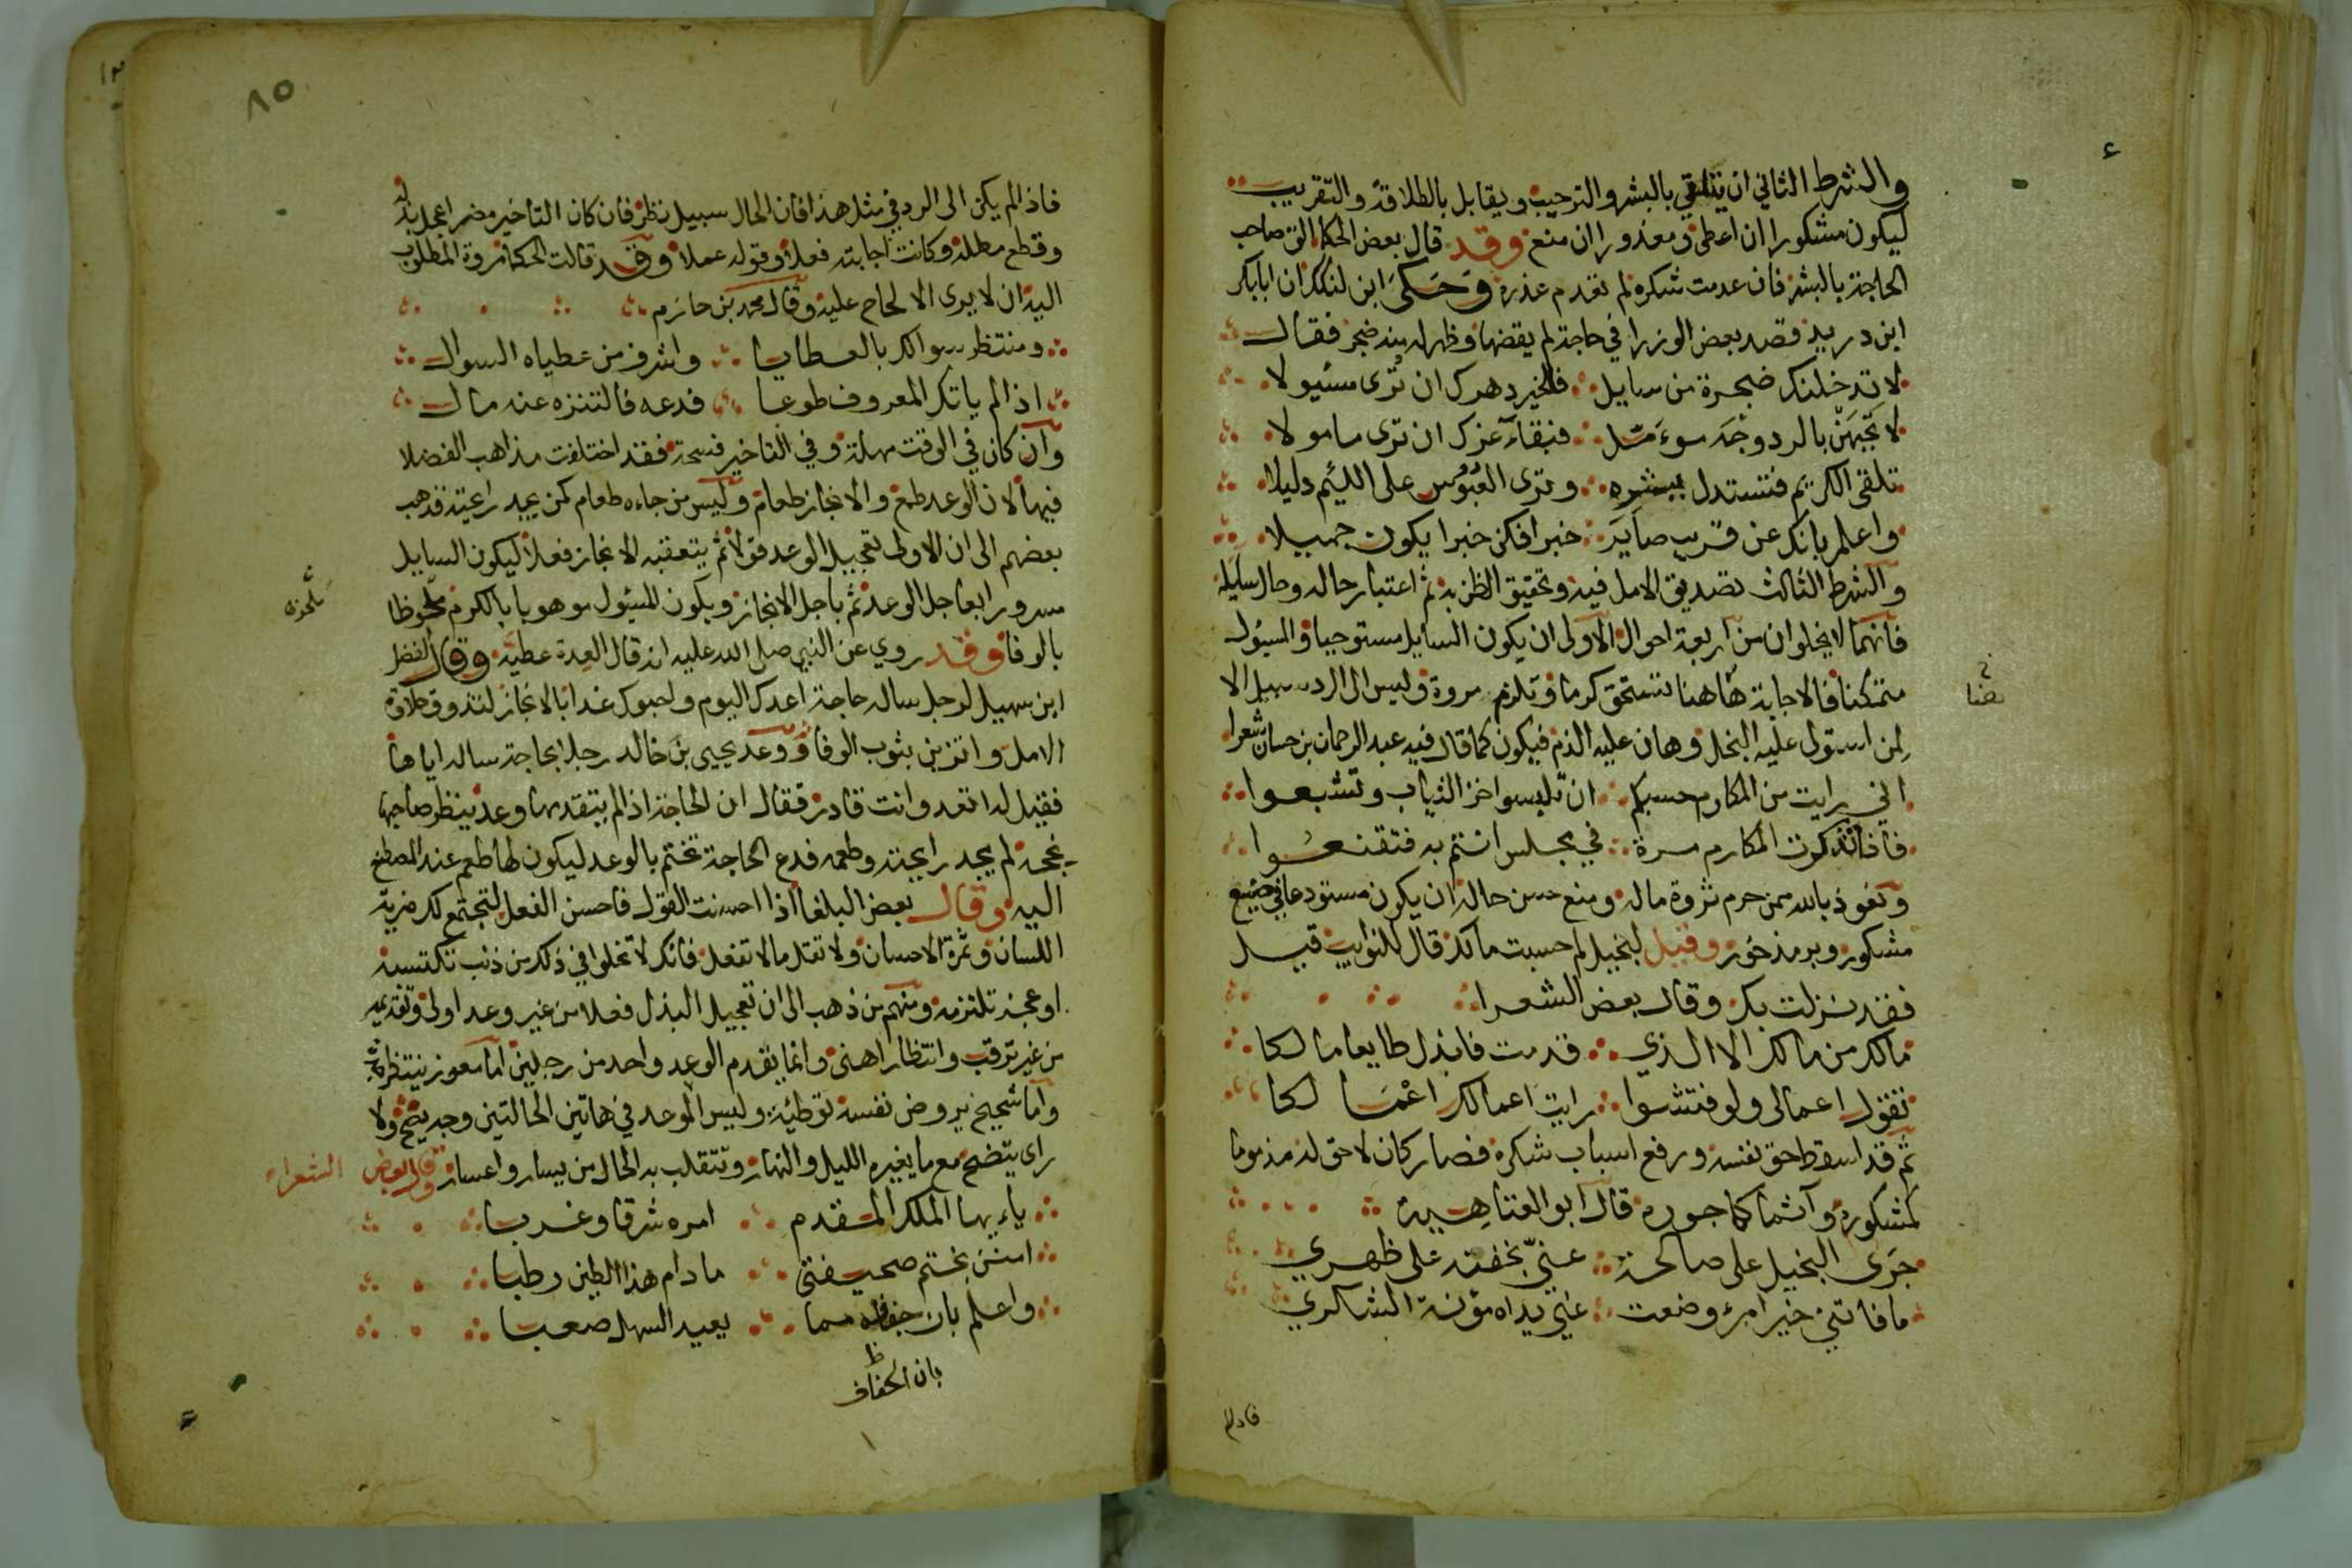 والشرط الثاني ان يتلقى بالبشر والترحيب ويقابل بالطلاقة والتقريب
ليكون مشكورا ان اعطى ومعذورا ان منع وقد قال بعض الحكما الق صاحب
الحاجة بالبشر فان عدمت شكره لم تقدم عذره وحكى ابن لنكك ان ابابكر
ابن دريد قصد بعض الوزرا في حاجة لم يقضها وظهر له منه ضجر فقال
لا تدخلنك ضجرة من سايل فلخير دهرك ان ترى مسئيولا
لا تجبهن بالرد وجه سوءمل فبقآء عزك ان ترى مامولا
تلقى الكريم فتستدل ببشره وترى العبوس على اللئيم دليلا
واعلم بانك عن قريب صاير خبرا فكن خبرا يكون جميلا
والشرط الثالث تصديق الامل فيه وتحقيق الظن به ثم اعتبار حاله وحال سايله
فانهما لا يخلوان من اربعة احوال الاولى ان يكون السايل مستوجبا والمسيول
متمكنا فالاجابة هاهنا تستحق كرما وتلزم مروة وليس الى الرد سبيل الا
لمن استولى عليه البخل وهان عليه الذم فيكون كما قال فيه عبد الرحمان بن حسان شعرا
اني رايت من المكارم حسبكم ان تلبسوا خز الثياب وتشبعوا
فاذا تذكرت المكارم مرة في مجلس انتم به فتقنعوا
ونعوذ بالله ممن حرم ثروة ماله ومنع حسن حاله ان يكون مستودعا في صنيع
مشكور وبر مذخور وقيل لبخيل لم حسبت مالك قال للنوايب قيل
فقد نزلت بك وقال بعض الشعرا
مالك من مالك الا الذي قدمت فابذل طايعا مالكا
تقول اعمالي ولو فتشوا رايت اعمالك اعمى لكا
ثم قد اسقط حق نفسه ورفع اسباب شكره فصار كان لا حق له مذموما
كمشكور وآثما كماجور قال ابو العتاهية
جزى البخيل على صالحة عني بخفته على ظهري
ما فاتني خير امرء وضعت عني يداه مؤنة الشكر
فاذالم
فاذالم يكن الى الرد في مثل هذا فان الحال سبيل نظر فان كان التاخير مضرا عجل بذله
وقطع مطله وكانت اجابته فعلا وقوله عملا وقد قالت الحكما مروة المطلوب
اليه ان لا يرى الالحاح عليه وقال محمد بن حازم
ومنتظر سوالك بالعطايا واشرف من عطياه السوال
اذا لم ياتك المعروف طوعا فدعه فالتنزه عنه مال
وان كان في الوقت مهلة وفي التاخير فسحة فقد اختلفت مذاهب الفضلا
فيها لان الوعد طمع والانجاز طعام وليس من جاءه طعام كمن يجد رائحته فذهب
بعضهم الى ان الاولى تعجيل الوعد قولا ثم يتعقبه الانجاز فعلا ليكون السايل
مسرورا بعاجل الوعد ثم باجل الانجاز ويكون المسئول موهوبا بالكرم ملحوظا
بالوفا وقد روي عن النبي صلى الله عليه انه قال العدة عطية وقال الفضل
ابن سهيل لرجل ساله حاجة اعدك اليوم واحبوك غدا بالانجاز لتذوق حلاوة
الامل واتزين بثوب الوفا ووعد يحيى بن خالد رجلا بحاجة ساله اياها
فقيل له اتعد وانت قادر فقال ان الحاجة اذا لم يتقدمها وعد ينتظر صاحبها
نجحه لم يجد رايحته وطعمه فدع الحاجة تختم بالوعد ليكون لها طعم عند المصطنع
اليه وقال بعض البلغا اذا احسنت القول فاحسن الفعل لتجتمع لك مزية
اللسان وثمرة الاحسان ولا تقل ما لا تفعل فانك لا تخلوا في ذلك من ذنب تكتسبه
او عجز تلتزمه ومنهم من ذهب الى ان تعجيل البذل فعلا من غير وعد اولى وتقديمه
من غير ترقب وانتظار اهنى وانما يقدم الوعد واحد من رجلين اما معوز ينتظر
واما شحيح يروض نفسه توطئة وليس للوعد في هاتين الحالتين وجه يتضح ولا
راي يتضح مع ما يغيره الليل والنهار وتتقلب به الحال من يسار واعسار وقال بعض الشعراء
يا ايها الملك المقدم امره شرقا وغربا
امنن بختم صحيفتي ما دام هذا الطين رطبا
واعلم بان جفافه مما يعيد السهل صعبا
بان الجفاف
٨٥